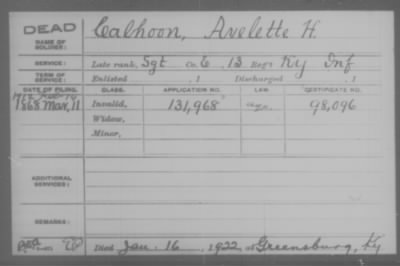 DEAD
NAME OF SOLDIER:
Calhoon, Avelette H.
SERVICE:
Late rank, Sgt Co. E, 13 Reg't Ky Inf
TERM OF SERVICE:
Enlisted , 1 Discharged , 1
DATE OF FILING. CLASS. APPLICATION NO. LAW. CERTIFICATE NO.
1868 Mar. 11 Invalid, 131,968 98,096
Widow,
Minor,
ADDITIONAL SERVICES:
REMARKS:
Died Jan. 16, 1922, at Greensburg, Ky